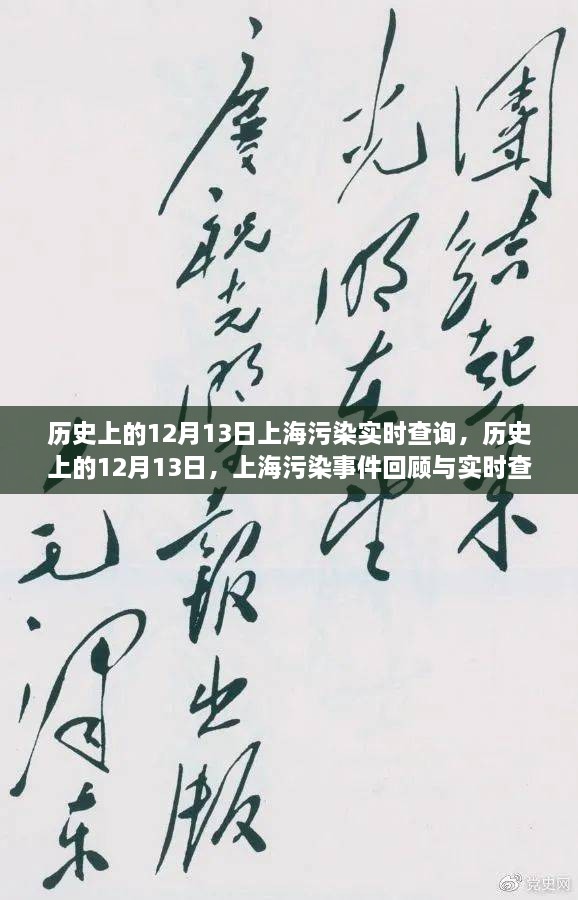 團結起来
光明在望
慶祝光明報出版
毛澤東
历史上的12月13日上海污染实时查询，历史
上的12月13日，上海污染事件回顾与实时查
党史网